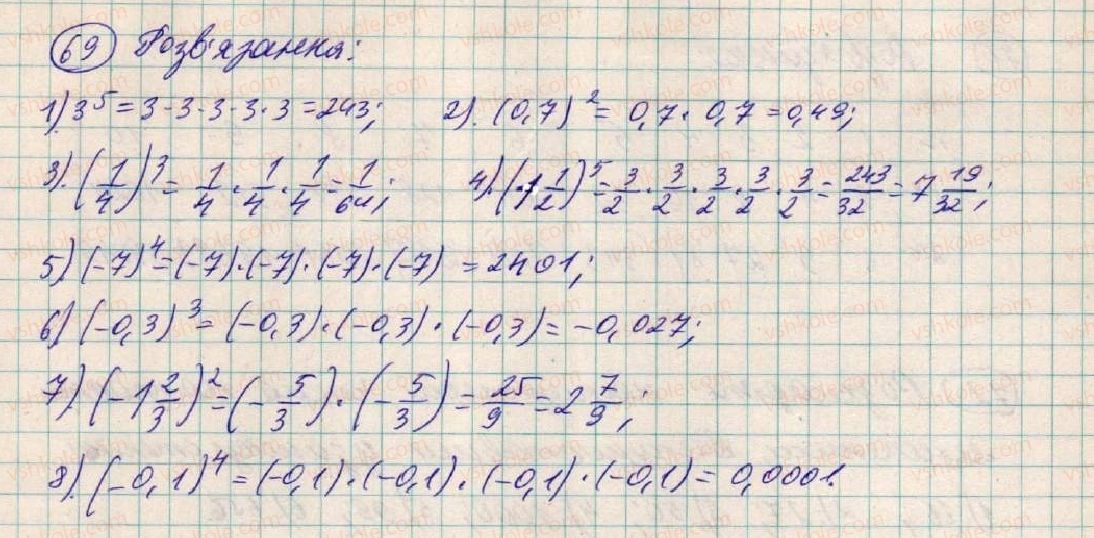 69 Розв'язання:
1) 3⁵ = 3·3·3·3·3 = 243; 2). (0,7)² = 0,7·0,7 = 0,49;
3). (1/4)³ = 1/4·1/4·1/4 = 1/64; 4). (1 1/2)⁵ = 3/2·3/2·3/2·3/2·3/2 = 243/32 = 7 19/32;
5) (-7)⁴ = (-7)·(-7)·(-7)·(-7) = 2401;
6) (-0,3)³ = (-0,3)·(-0,3)·(-0,3) = -0,027;
7) (-1 2/3)² = (-5/3)·(-5/3) = 25/9 = 2 7/9;
8). (-0,1)⁴ = (-0,1)·(-0,1)·(-0,1)·(-0,1) = 0,0001.